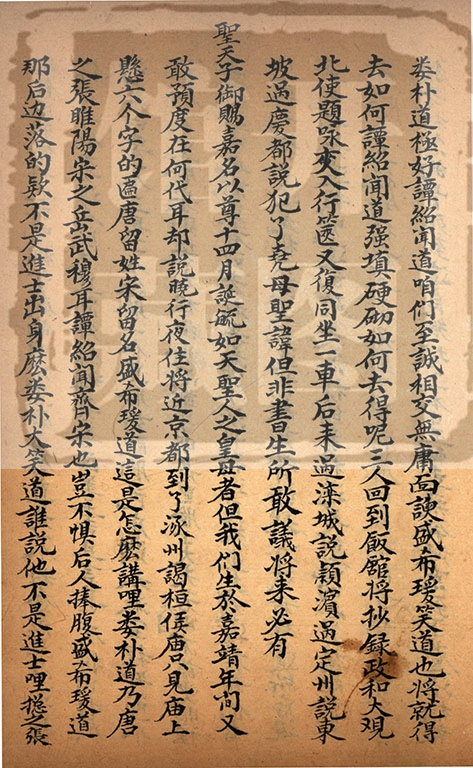 娄朴道極好譚紹聞道咱們至誠相交無庸面諛盛希瑗笑道也將就得
去如何譚紹聞道强填硬砌如何去得呢三人回到飯館將抄録政和大觀
北使題咏夾入行篋又復同坐一車后来過滦城說颖濱過定州說東
坡過慶都說犯了堯母聖諱但非書生所敢議將来必有
聖天子御赐嘉名以尊十四月誕毓如天聖人之皇母者但我們生於嘉靖年间又
敢預度在何代耳却說曉行夜住將近京都到了涿州謁桓侯庙只見庙上
懸六个字的匾唐留姓宋留名盛希瑗道這是怎麽講哩娄朴道乃唐
之張睢陽宋之岳武穆耳譚紹聞齊宋也豈不惧后人捧腹盛希瑗道
那后边落的欵不是進士出身麽娄朴大笑道誰說他不是進士哩揔之張